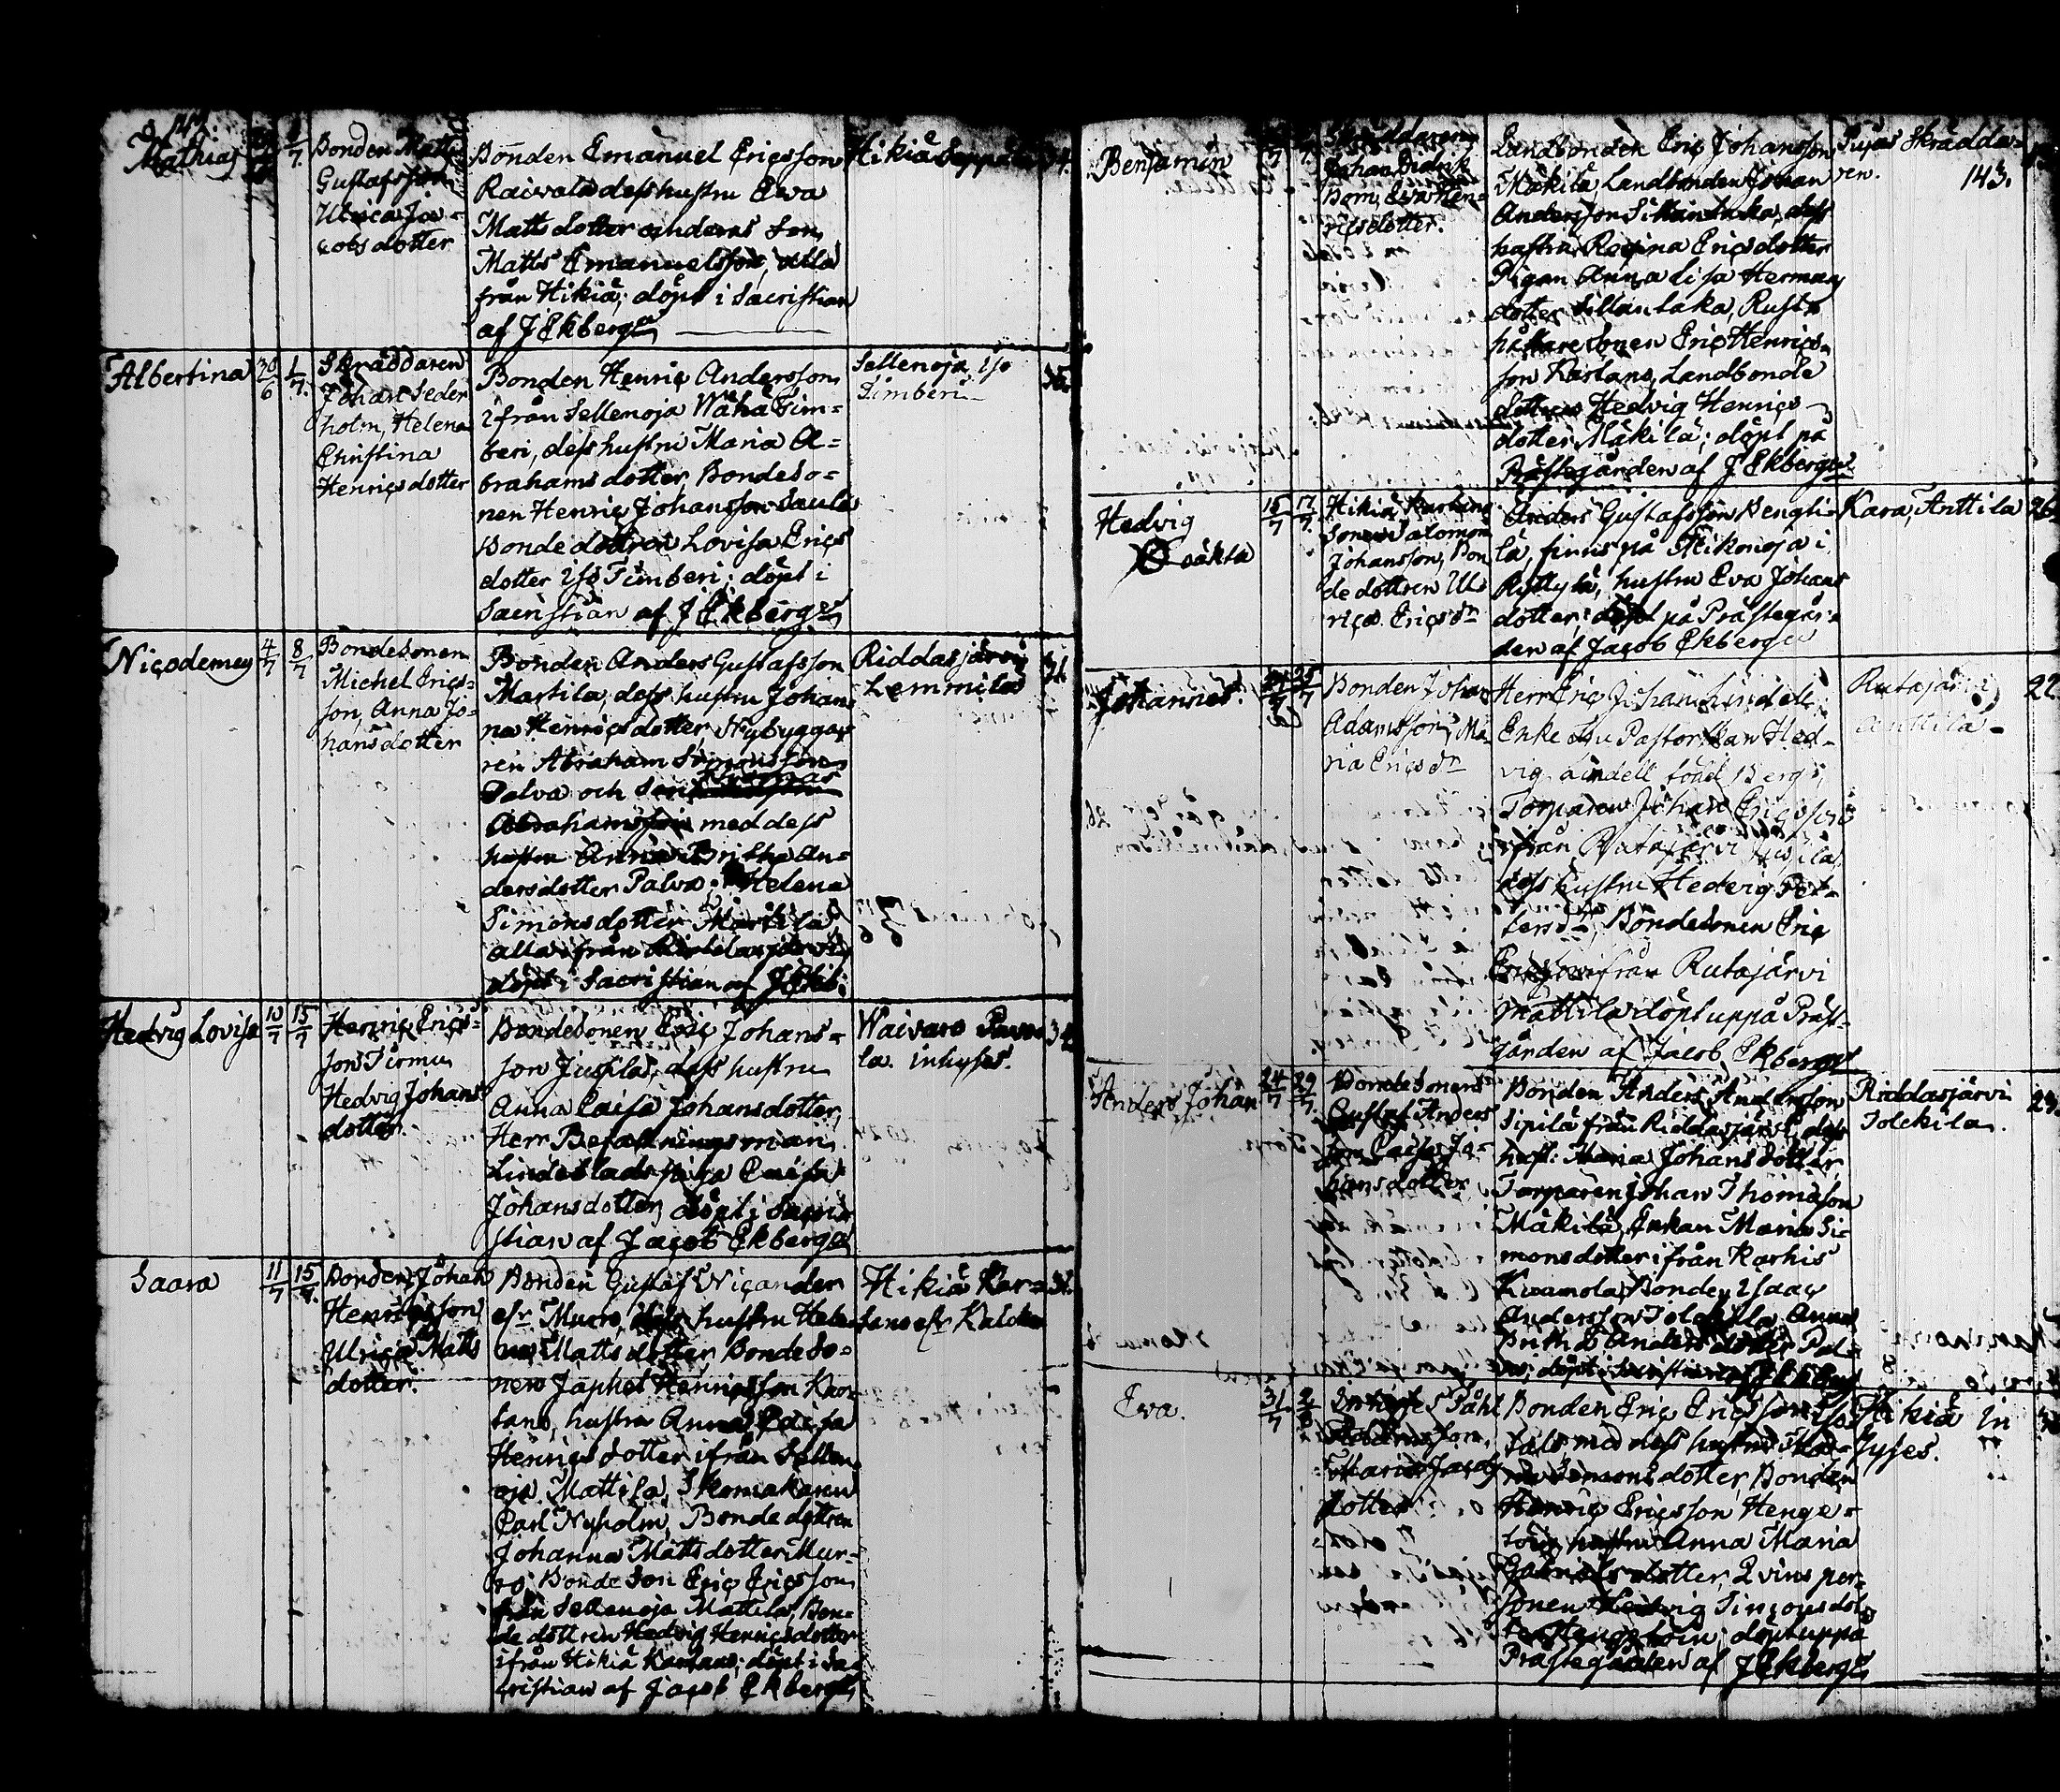 142.
Mathias
7.
Bonden Matts
Gustafsson
Ulrica Ja-
cobsdotter
Bonden Emanuel Ericsson
Raivala dess hustru Eva
Mattsdotter andras Son
Matts Emanuelsson, alla
från Hikiä; döpt i Sacristian
af J Ekberg
Hikiä Seppälä
34.
Albertina
30/6
1/7.
Skräddaren
Johan Seder
holm, Helena
Christina
Henricsdotter
Bonden Henric Andersson
ifrån Sellenoja Wähä Tim-
beri, dess hustru Maria A-
brahamsdotter, Bondeso-
nen Henric Johansson Saula
Bondedottren Lovisa Erics
dotter iso Timberi; döpt i
Sacristian af J Ekberg
Sellenoja iso
Timberi
Nicodemus
4/7
8/7
Bondesonen
Michel Erics-
son, Anna Jo-
hansdotter
Bonden Anders Gustafsson
Martila, dess hustru Johan
na Henricsdotter, Nybyggar
ren Abraham Simonsson
Palva och
Abrahamsson med dess
hustru Anna Britha An-
dersdotter Palva; Helena
Simonsdotter Martila,
alla ifrån Riddasjärvi
döpt i Sacristian af J Ekb:
Riddasjärvi
Lemmila
Hedvig Lovisa
10/7
15/7
Henric Erics-
son Tirmu
Hedvig Johans
dotter.
Bondesonen Eric Johans-
son Jusila, dess hustru
Anna Caisa Johansdotter,
Herr Befallningsman
Lindeblads piga Caisa
Johansdotter, döpt i Sacri-
stian af Jacob Ekberg
Waivaro
la. inhyses.
Saara
11/7
15/7.
Bonden Johan
Henricsson
Ulrica Matts
dotter.
Bonden Gustaf Nicander
elr Murro, dess hustru Hele
na Mattsdotter Bondeso-
nen Japhet Henricsson Kar
lano, hustru Anna Caisa
Henricsdotter ifrån Sellen
oja Mattila, Skomakaren
Carl Nyholm, Bondedottren
Johanna Mattsdotter Mur-
ro; Bonde Son Eric Ericsson
från Sellenoja Mattila, Bon-
de dottren Hedvig Henricsdotter
ifrån Hikiä Karlano; döpt i Sa
cristian af Jacob Ekberg
Hikiä Kar-
lano elr Kalcka
Benjamin
Skräddaren
Johan Fredrik
Bom, Eva Hen-
ricsdotter.
Landbonden Eric Johansson
Mäkilä Landbonden Johan
Andersson Sillanlaka, dess
hustru Regina Ericsdotter
Pigan Anna Lisa Hermans
dotter Sillanlaka, Rust
hållare Sonen Eric Henrics-
son Karlano, Landbonde
dottren Hedvig Henrics
dotter Mäkilä; döpt på
Prästegården af J Ekberg
Pujas Skrädda-
ren.
143.
Hedvig
oäkta
15/7
17/7.
Hikiä Karlano
Sonen Salomon
Johansson, Bon
de dottren Ul-
rica Ericsdr
Anders Gustafsson Bengti-
lä, finns på Mikonoja i
Ryttylä, hustru Eva Johans
dotter; döpt på Prästegår-
den af Jacob Ekberg
Kara, Anttila
26.
Johannes.
Bonden Johan
Adamsson, Ma-
ria Ericsdr
Herr Eric Johan Lindell
Enke Fru Pastorskan Hed-
vig Lindell född Berg;
Torparen Johan Ericsson
ifrån Rutajärvi Jusila,
dess hustru Hedvig Pet-
tersdr, Bondesonen Eric
Ericsson ifrån Rutajärvi
Mattila döpt uppå Präst-
gården af Jacob Ekberg
Rutajärvi
Anttila-
22.
Anders Johan
24/7
29/7.
Bondesonen
Gustaf Anders
son Caisa Jo-
hansdotter
Bonden Anders Andersson
Sipilä från Riddasjärvi, dess
hust: Maria Johansdotter
Torparen Johan Thomasson
Mäkilä, Enkan Maria Si-
monsdotter ifrån Karhis
Kuamola, Bonden Isaac
Andersson Tolckila, Anna
Britha Andersdotter Pal-
va; döpt i Sacristian af J Ekberg
Riddasjärvi
Tolckila.
Eva.
31/7
2/8
Inhyses Påhl
Andersson,
Maria Jacobs
dotter
Bonden Eric Ericsson iso
Sals med dess hustru
Simonsdotter, Bonden
Henric Ericsson Henge-
toin, hustru Anna Maria
Gabrielsdotter, 2 vins per-
sonen Hedvig Simonsdot-
ter Hengetoin; döpt uppå
Prästegården af J Ekberg
Hikiä In
hyses.